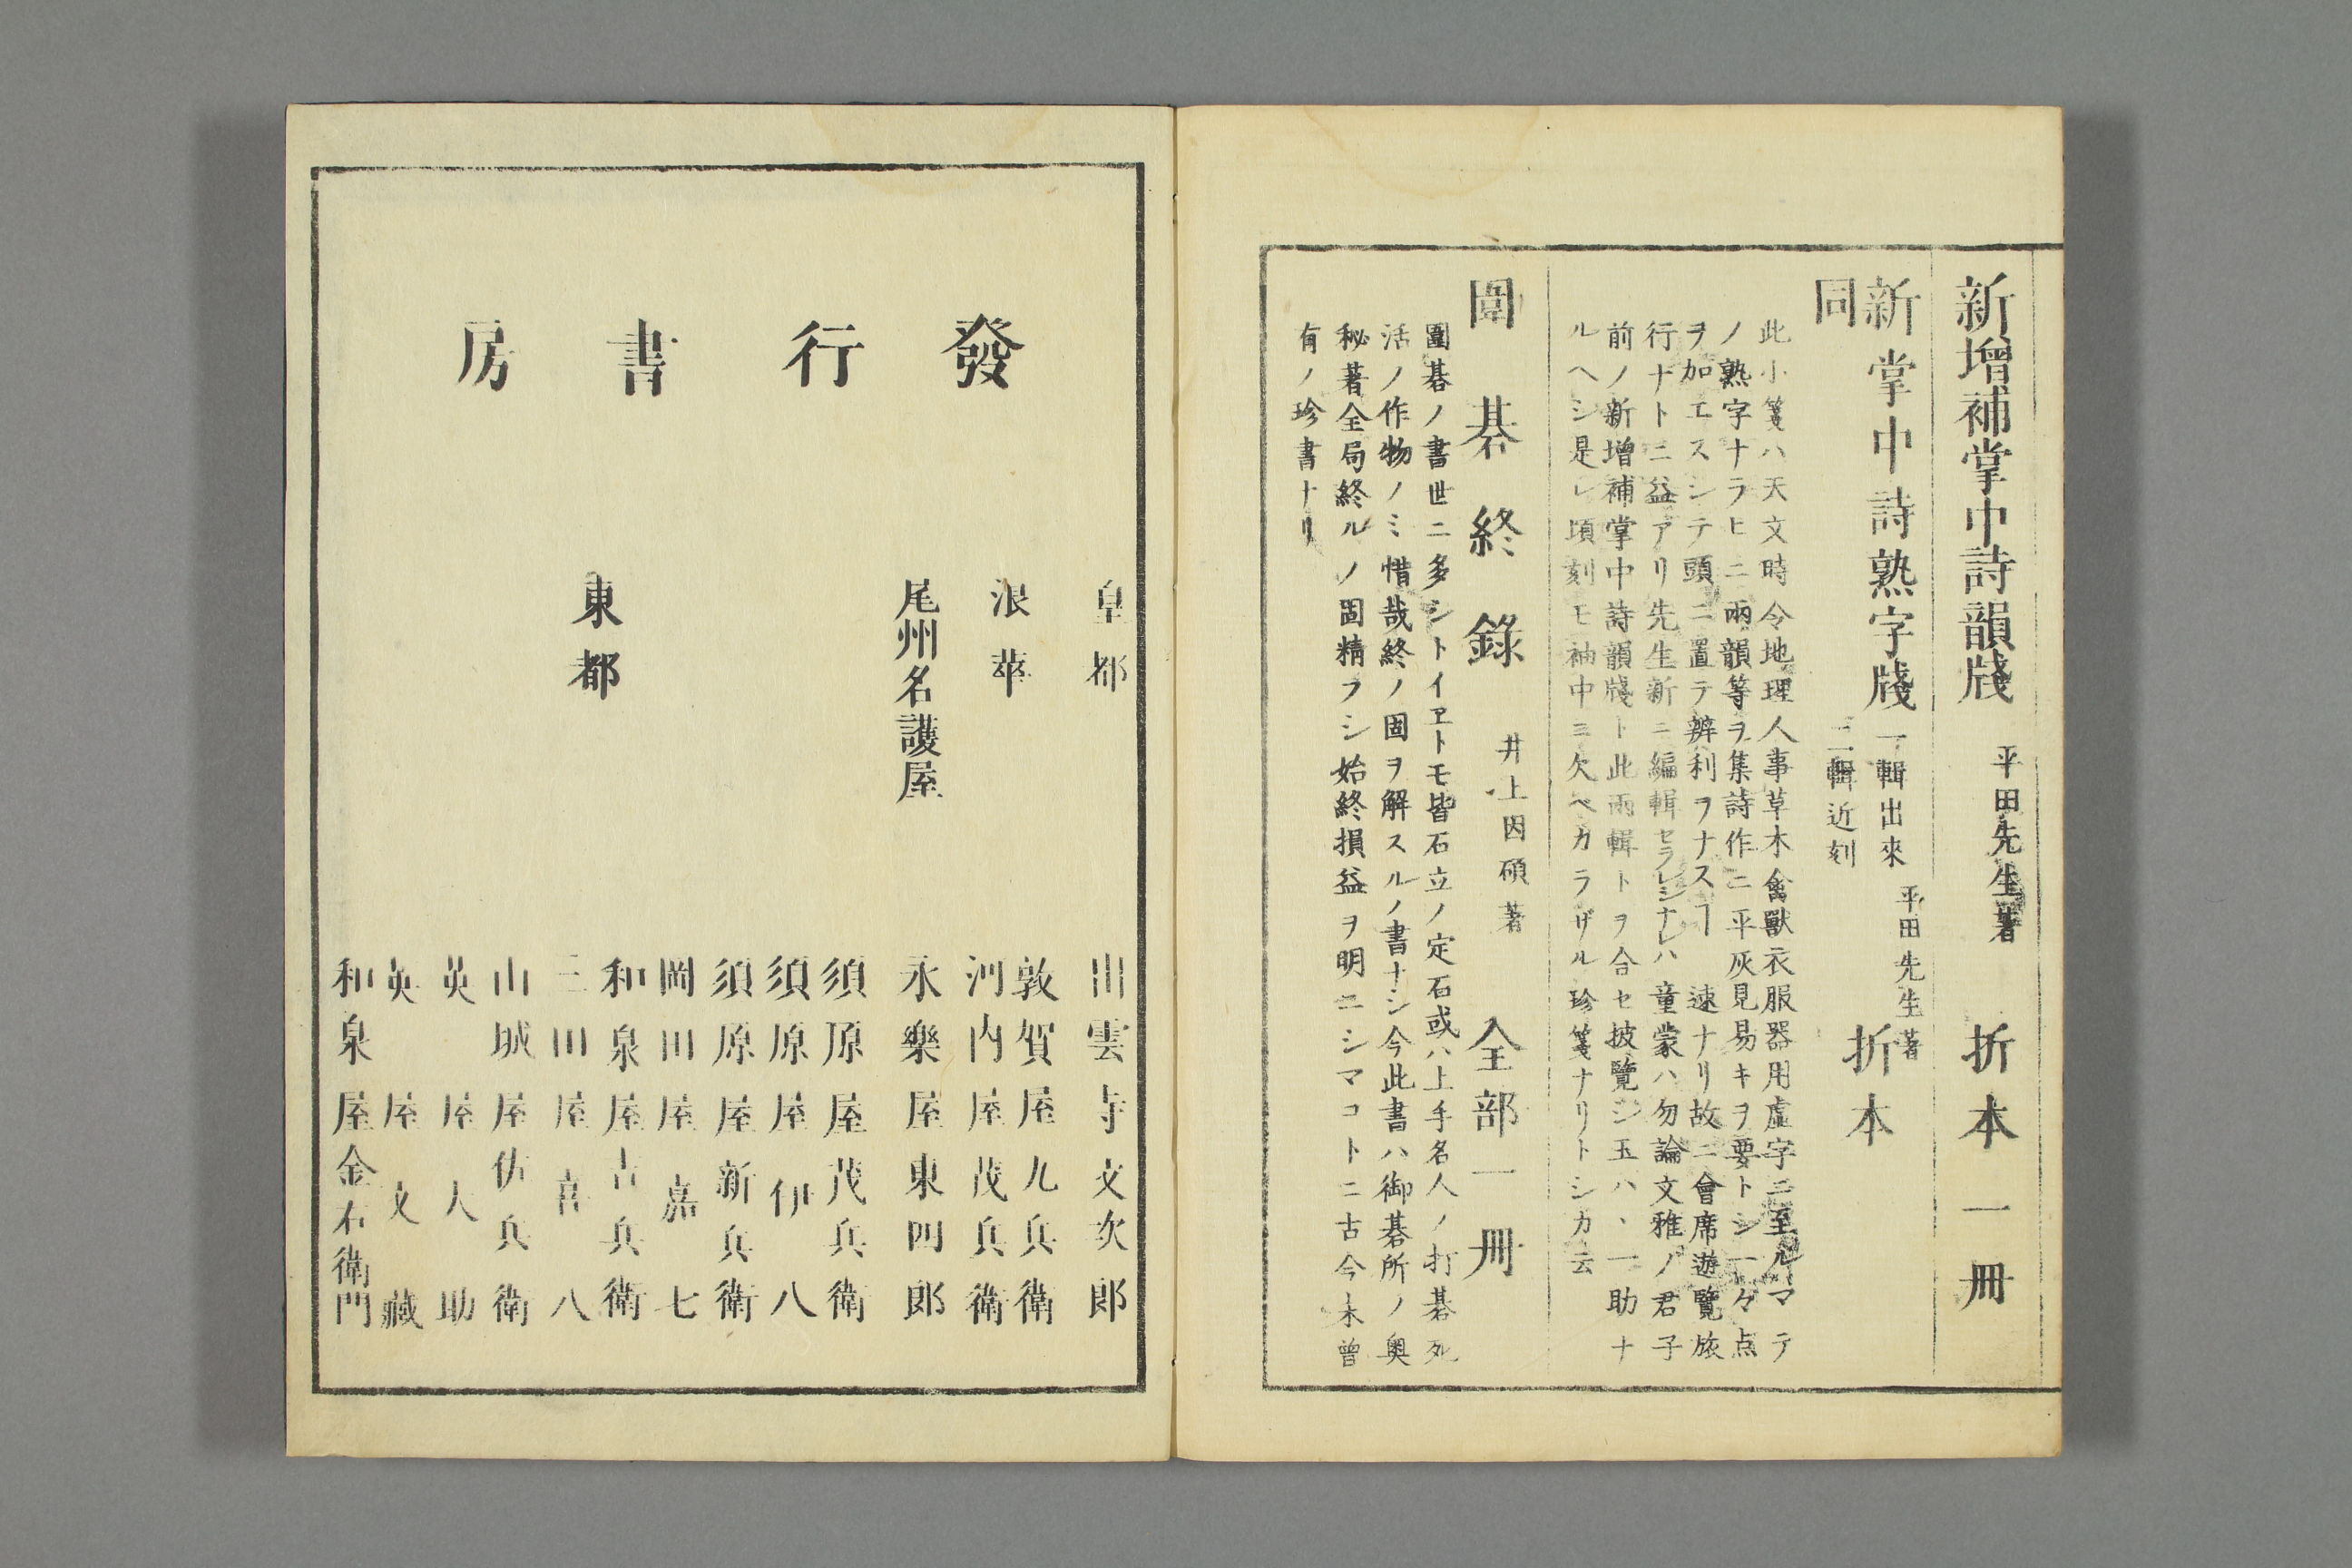 新增補掌中詩韻牋 平田先生著 折本一冊
新掌中詩熟字牋 一輯出來 平田先生著 折本
同 二輯近刻
此小箋ハ天文時令地理人事草木禽獸衣服器用虛字ニ至ルマテ
ノ熟字ナラヒニ兩韻等ヲ集詩作ニ平灰見易キヲ要トシ一々点
ヲ加エスシテ頭ニ置テ辨利ヲナスヿ速ナリ故ニ會席遊覽旅
行ナトニ益アリ先生新ニ編輯セラレシナレハ童蒙ハ勿論文雅ノ君子
前ノ新增補掌中詩韻牋ト此兩輯トヲ合セ披覽シ玉ハヽ一助ナ
ルヘシ是レ頃刻モ袖中ニ欠ベカラザル珍箋ナリトシカ云
圍碁終錄 井上因碩著 全部一冊
圍碁ノ書世ニ多シトイヱトモ皆石立ノ定石或ハ上手名人ノ打碁死
活ノ作物ノミ惜哉終ノ固ヲ解スルノ書ナシ今此書ハ御碁所ノ奧
秘著全局終ルノ固精フシ始終損益ヲ明ニシマコトニ古今未曾
有ノ珍書ナリ
發行書房
皇都 出雲寺文次郎
浪華 敦賀屋九兵衞
河內屋茂兵衞
尾州名護屋 永樂屋東四郎
須原屋茂兵衞
須原屋伊八
須原屋新兵衞
岡田屋嘉七
東都 和泉屋吉兵衞
三田屋喜八
山城屋佐兵衞
英屋大助
英屋文藏
和泉屋金右衞門